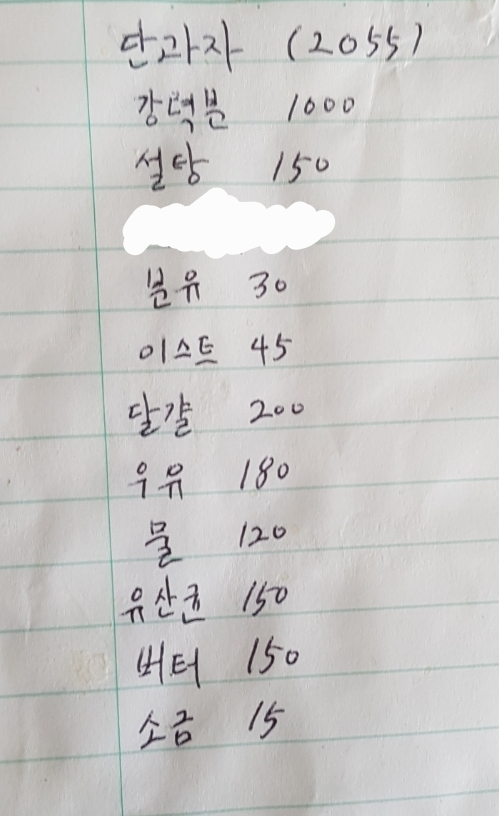 단과자 (2055)
강력분 1000
설탕 150
분유 30
이스트 45
달걀 200
우유 180
물 120
유산균 150
버터 150
소금 15